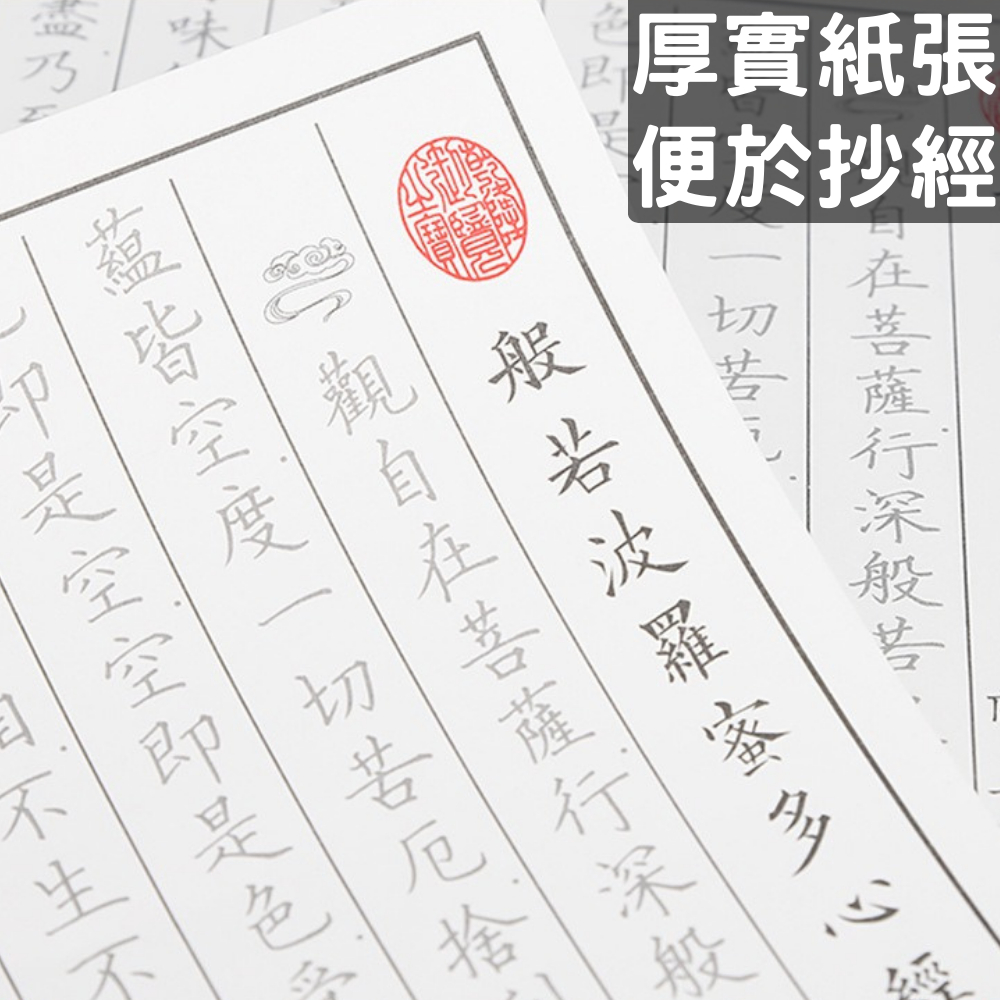 厚實紙張
便於抄經
乾隆御覽之寶
般若波羅蜜多心經
觀自在菩薩行深般
蘊皆空度一切苦厄捨
即是空空即是色受
不生不
自在菩薩行深般若
度一切苦厄
色即是
味
盡乃至